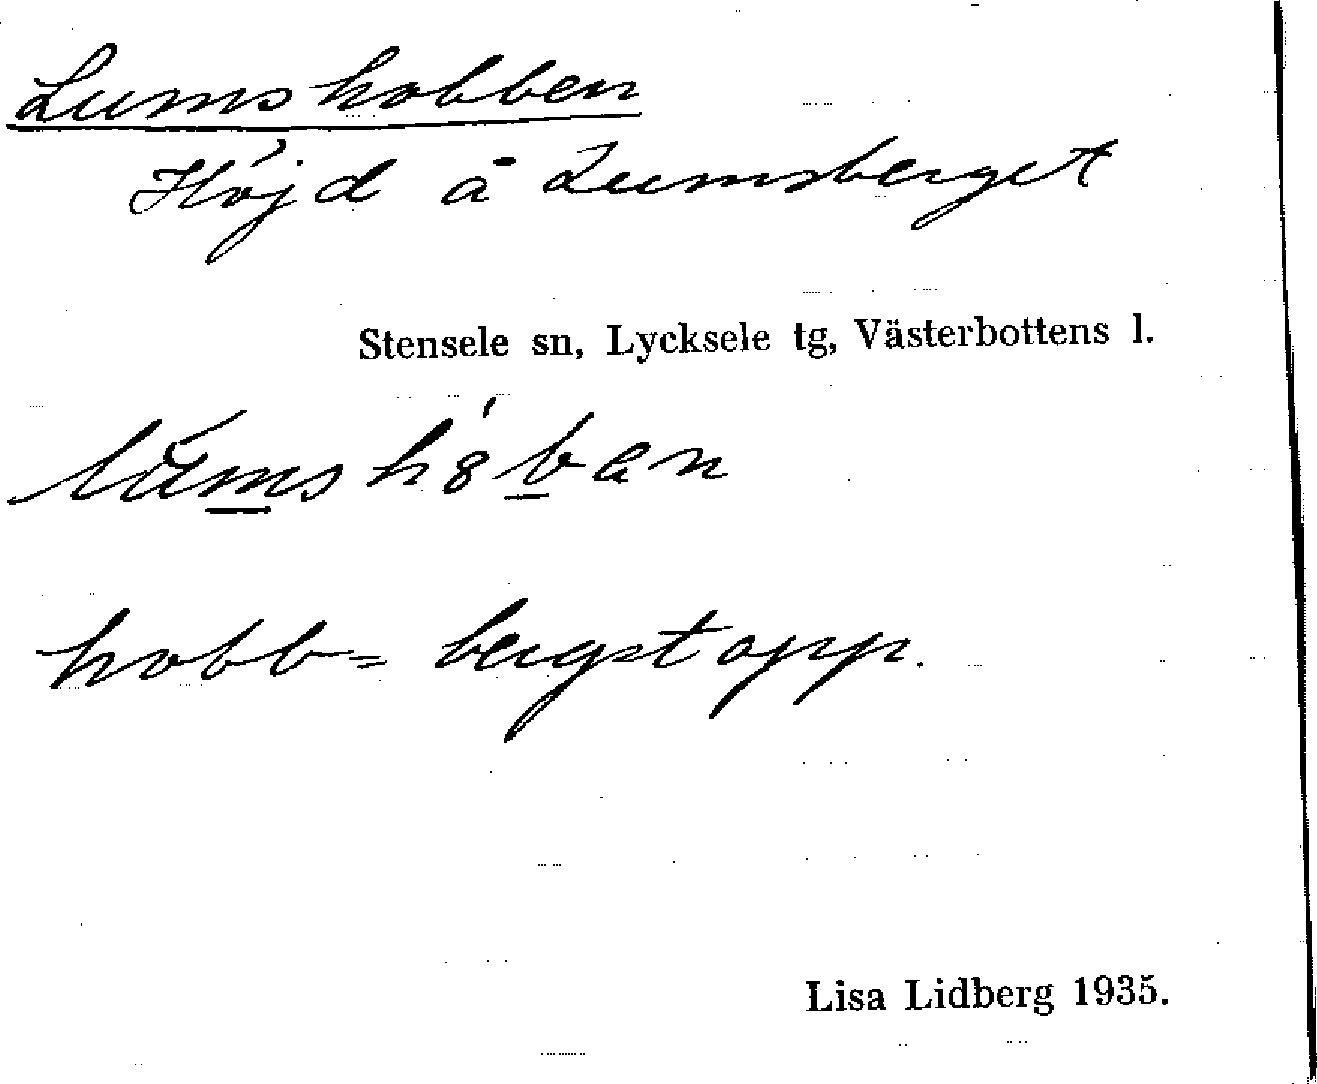 Lumshobben
Höjd å Lumsberget
Stensele sn, Lycksele tg, Västerbottens l.
hobb = bergstopp.
Lisa Lidberg 1935.